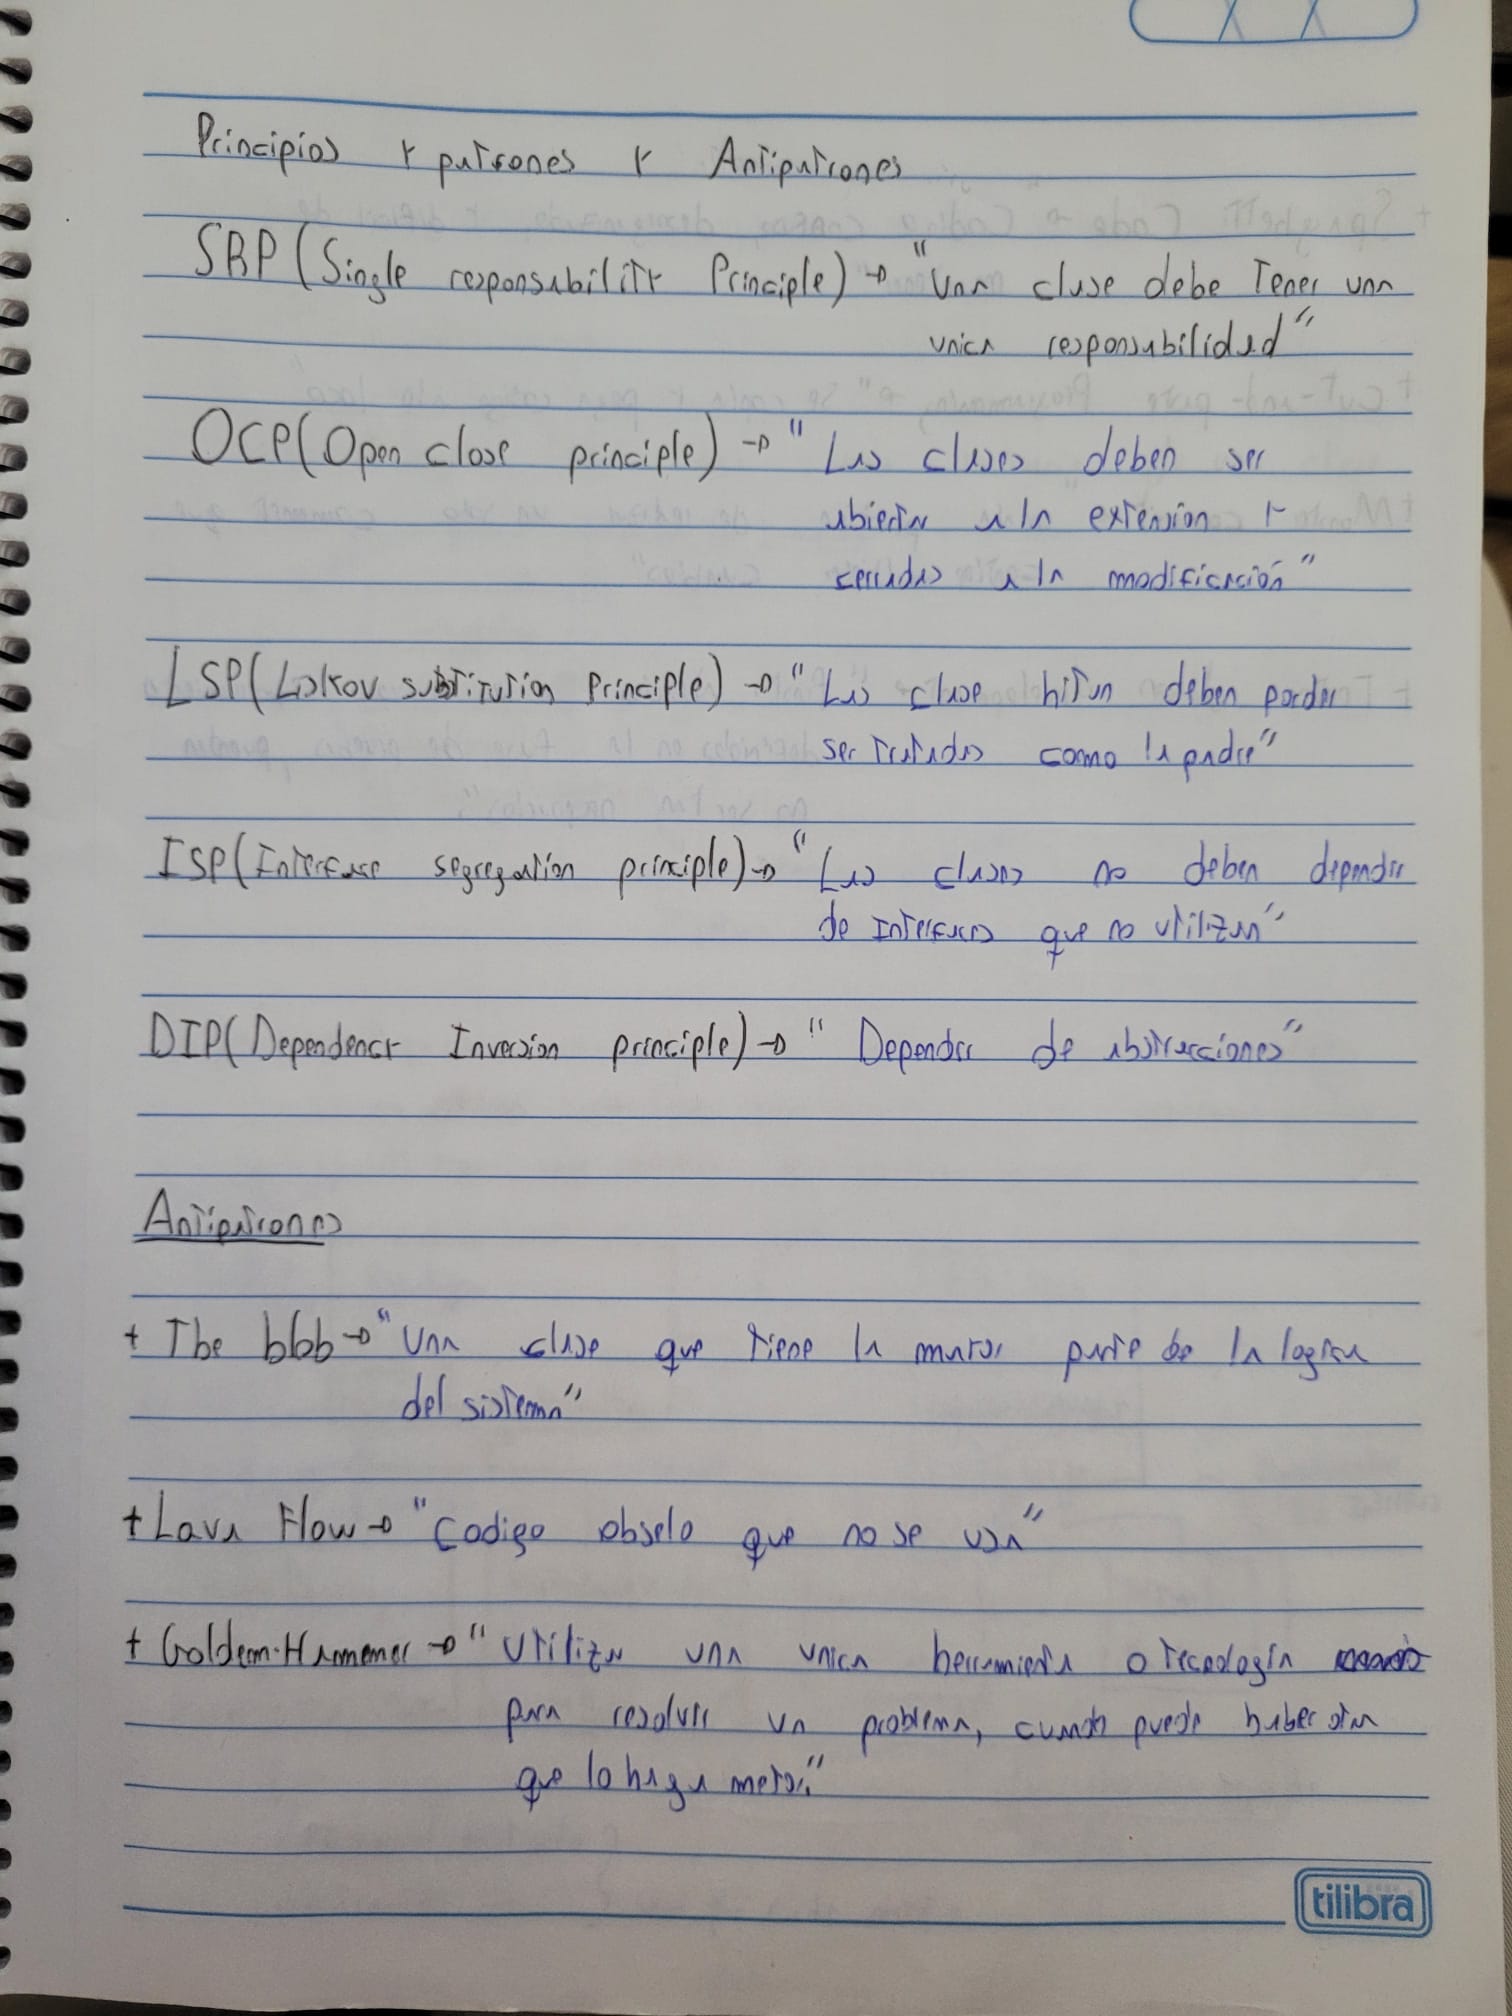 Principios y patrones y Antipatrones
SRP (Single responsability Principle) → "Una clase debe Tener una
unica responsabilidad"
OCP (Open close principle) → "Las clases deben ser
abierta a la extension y
cerradas a la modificación"
LSP (Liskov substitution Principle) → "Las clase hijas deben poder
ser tratadas como la padre"
ISP (Interfase segregation principle) → "Las clases no deben depender
de Interfaces que no utilizan"
DIP (Dependency Inversion principle) → "Depender de abstracciones"
Antipatrones
+ The blob → "Una clase que tiene la mayor parte de la logica
del sistema"
+ Lava Flow → "Codigo obselo que no se usa"
+ Goldem-Hammer → "Utiliza una unica herramienta o tecnologia
para resolver un problema, cuando puede haber otra
que lo haga mejor"
tilibra